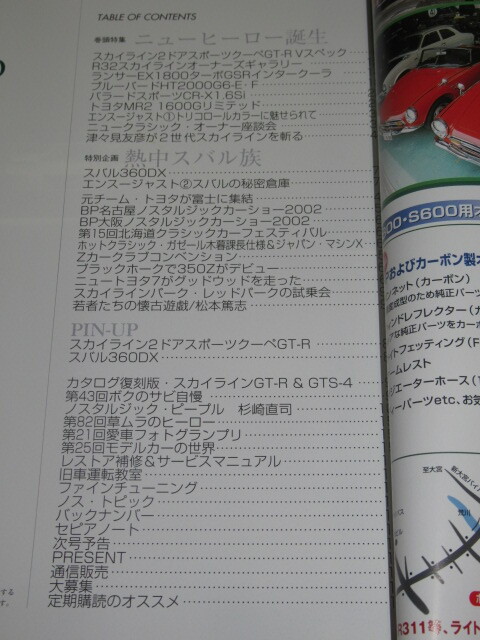 TABLE OF CONTENTS
巻頭特集 ニューヒーロー誕生
スカイライン2ドアスポーツクーペGT-R Vスペック
R32スカイラインオーナーズギャラリー
ランサーEX1800ターボGSRインタークーラ
ブルーバードHT2000G6-E・F
バラードスポーツCR-X1.6Si
トヨタMR2 1600Gリミテッド
エンスージャスト①トリコロールカラーに魅せられて
ニュークラシック・オーナー座談会
津々見友彦が2世代スカイラインを斬る
特別企画 熱中スバル族
スバル360DX
エンスージャスト②スバルの秘密倉庫
元チーム・トヨタが富士に集結
BP名古屋ノスタルジックカーショー2002
BP大阪ノスタルジックカーショー2002
第15回北海道クラシックカーフェスティバル
ホットクラシック・ガゼール木暮課長仕様&ジャパン・マシンX
Zカークラブコンベンション
ブラックホークで350Zがデビュー
ニュートヨタ7がグッドウッドを走った
スカイラインパーク・レッドパークの試乗会
若者たちの懐古遊戯/松本篤志
PIN-UP
スカイライン2ドアスポーツクーペGT-R
スバル360DX
カタログ復刻版・スカイラインGT-R & GTS-4
第43回ボクのサビ自慢
ノスタルジック・ピープル 杉崎直司
第82回草ムラのヒーロー
第21回愛車フォトグランプリ
第25回モデルカーの世界
レストア補修&サービスマニュアル
旧車運転教室
ファインチューニング
ノス・トピック
バックナンバー
セピアノート
次号予告
PRESENT
通信販売
大募集
定期購読のオススメ
する
す。
00・S600用オ
およびカーボン製オ
ンネット(カーボン)
成型のため純正パーツ
ンドレフレクター(カ
な純正パーツをカーボ
イトフェッティング(F
ームレスト
ジエーターホース(
ーパーツetc、お気
至大宮
新大宮バイパ
荒川
R311
ライト